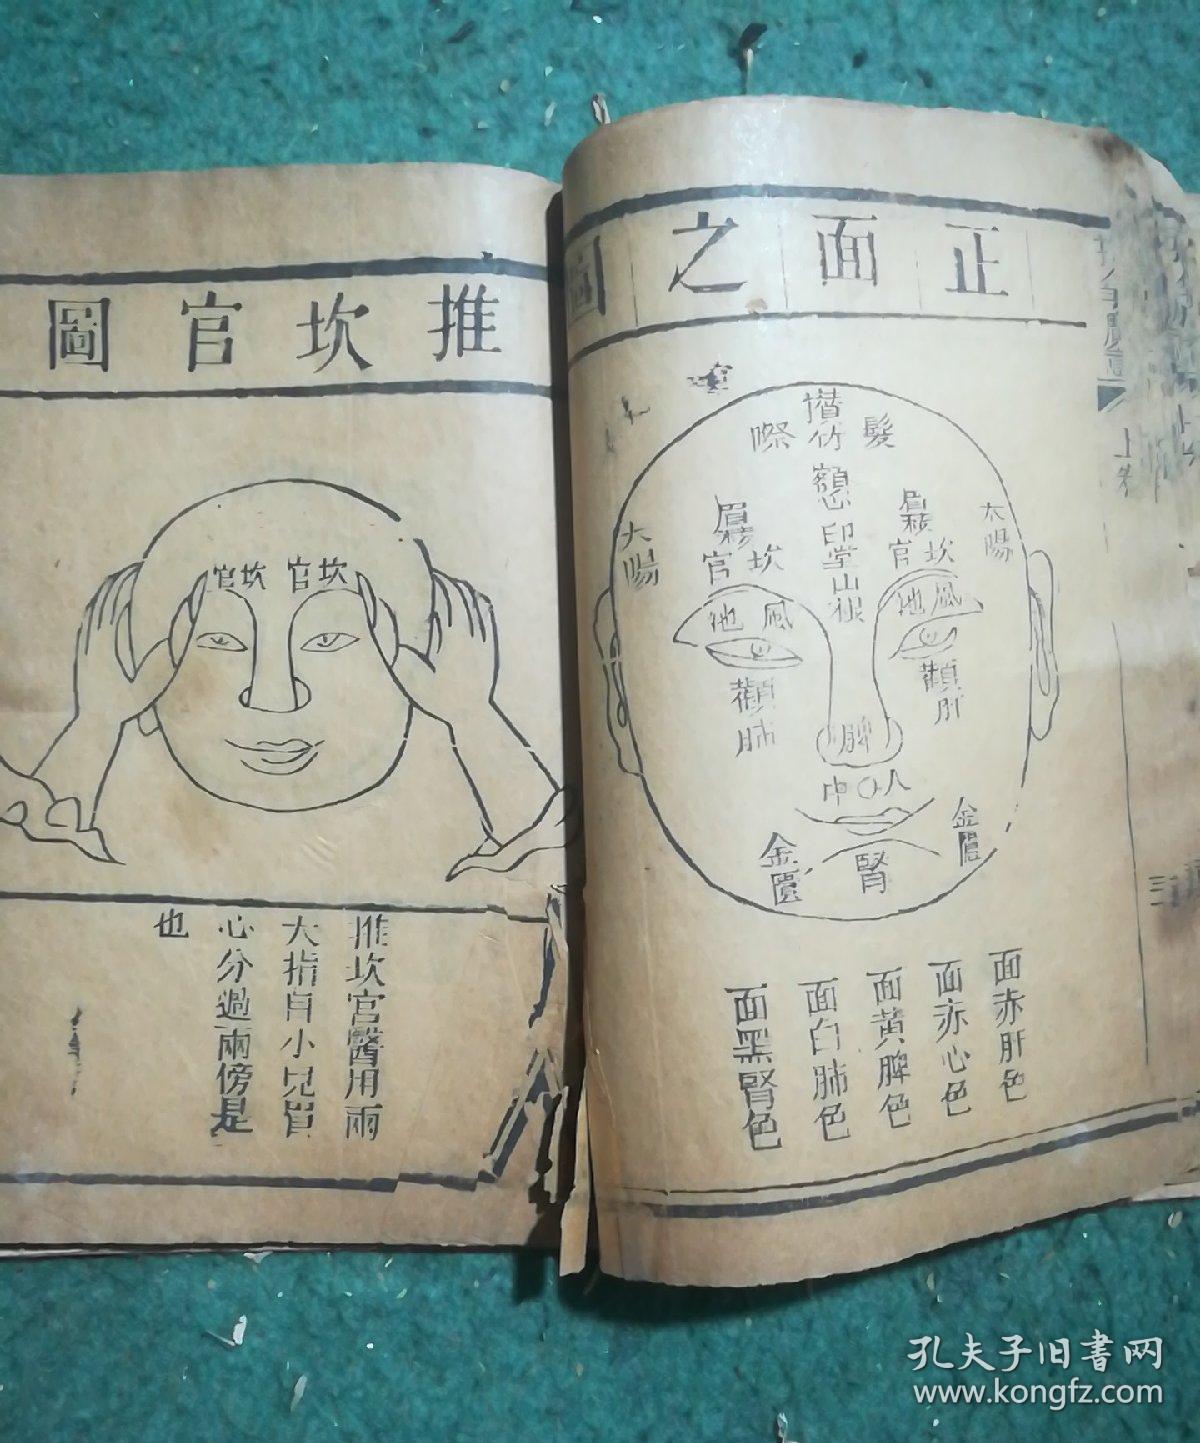 正面之圖
髮際
攢竹
額
印堂山根
眉
坎宫
風池
太陽
眉
坎宫
風池
太陽
顴肝
顴肺
脾
人中
金匱
金匱
腎
面赤肝色
面赤心色
面黄脾色
面白肺色
面黑腎色
上卷
三
推坎官圖
坎官
坎官
推坎宫醫用兩
大指自小兒眉
心分過兩傍是
也
孔夫子旧書网
www.kongfz.com